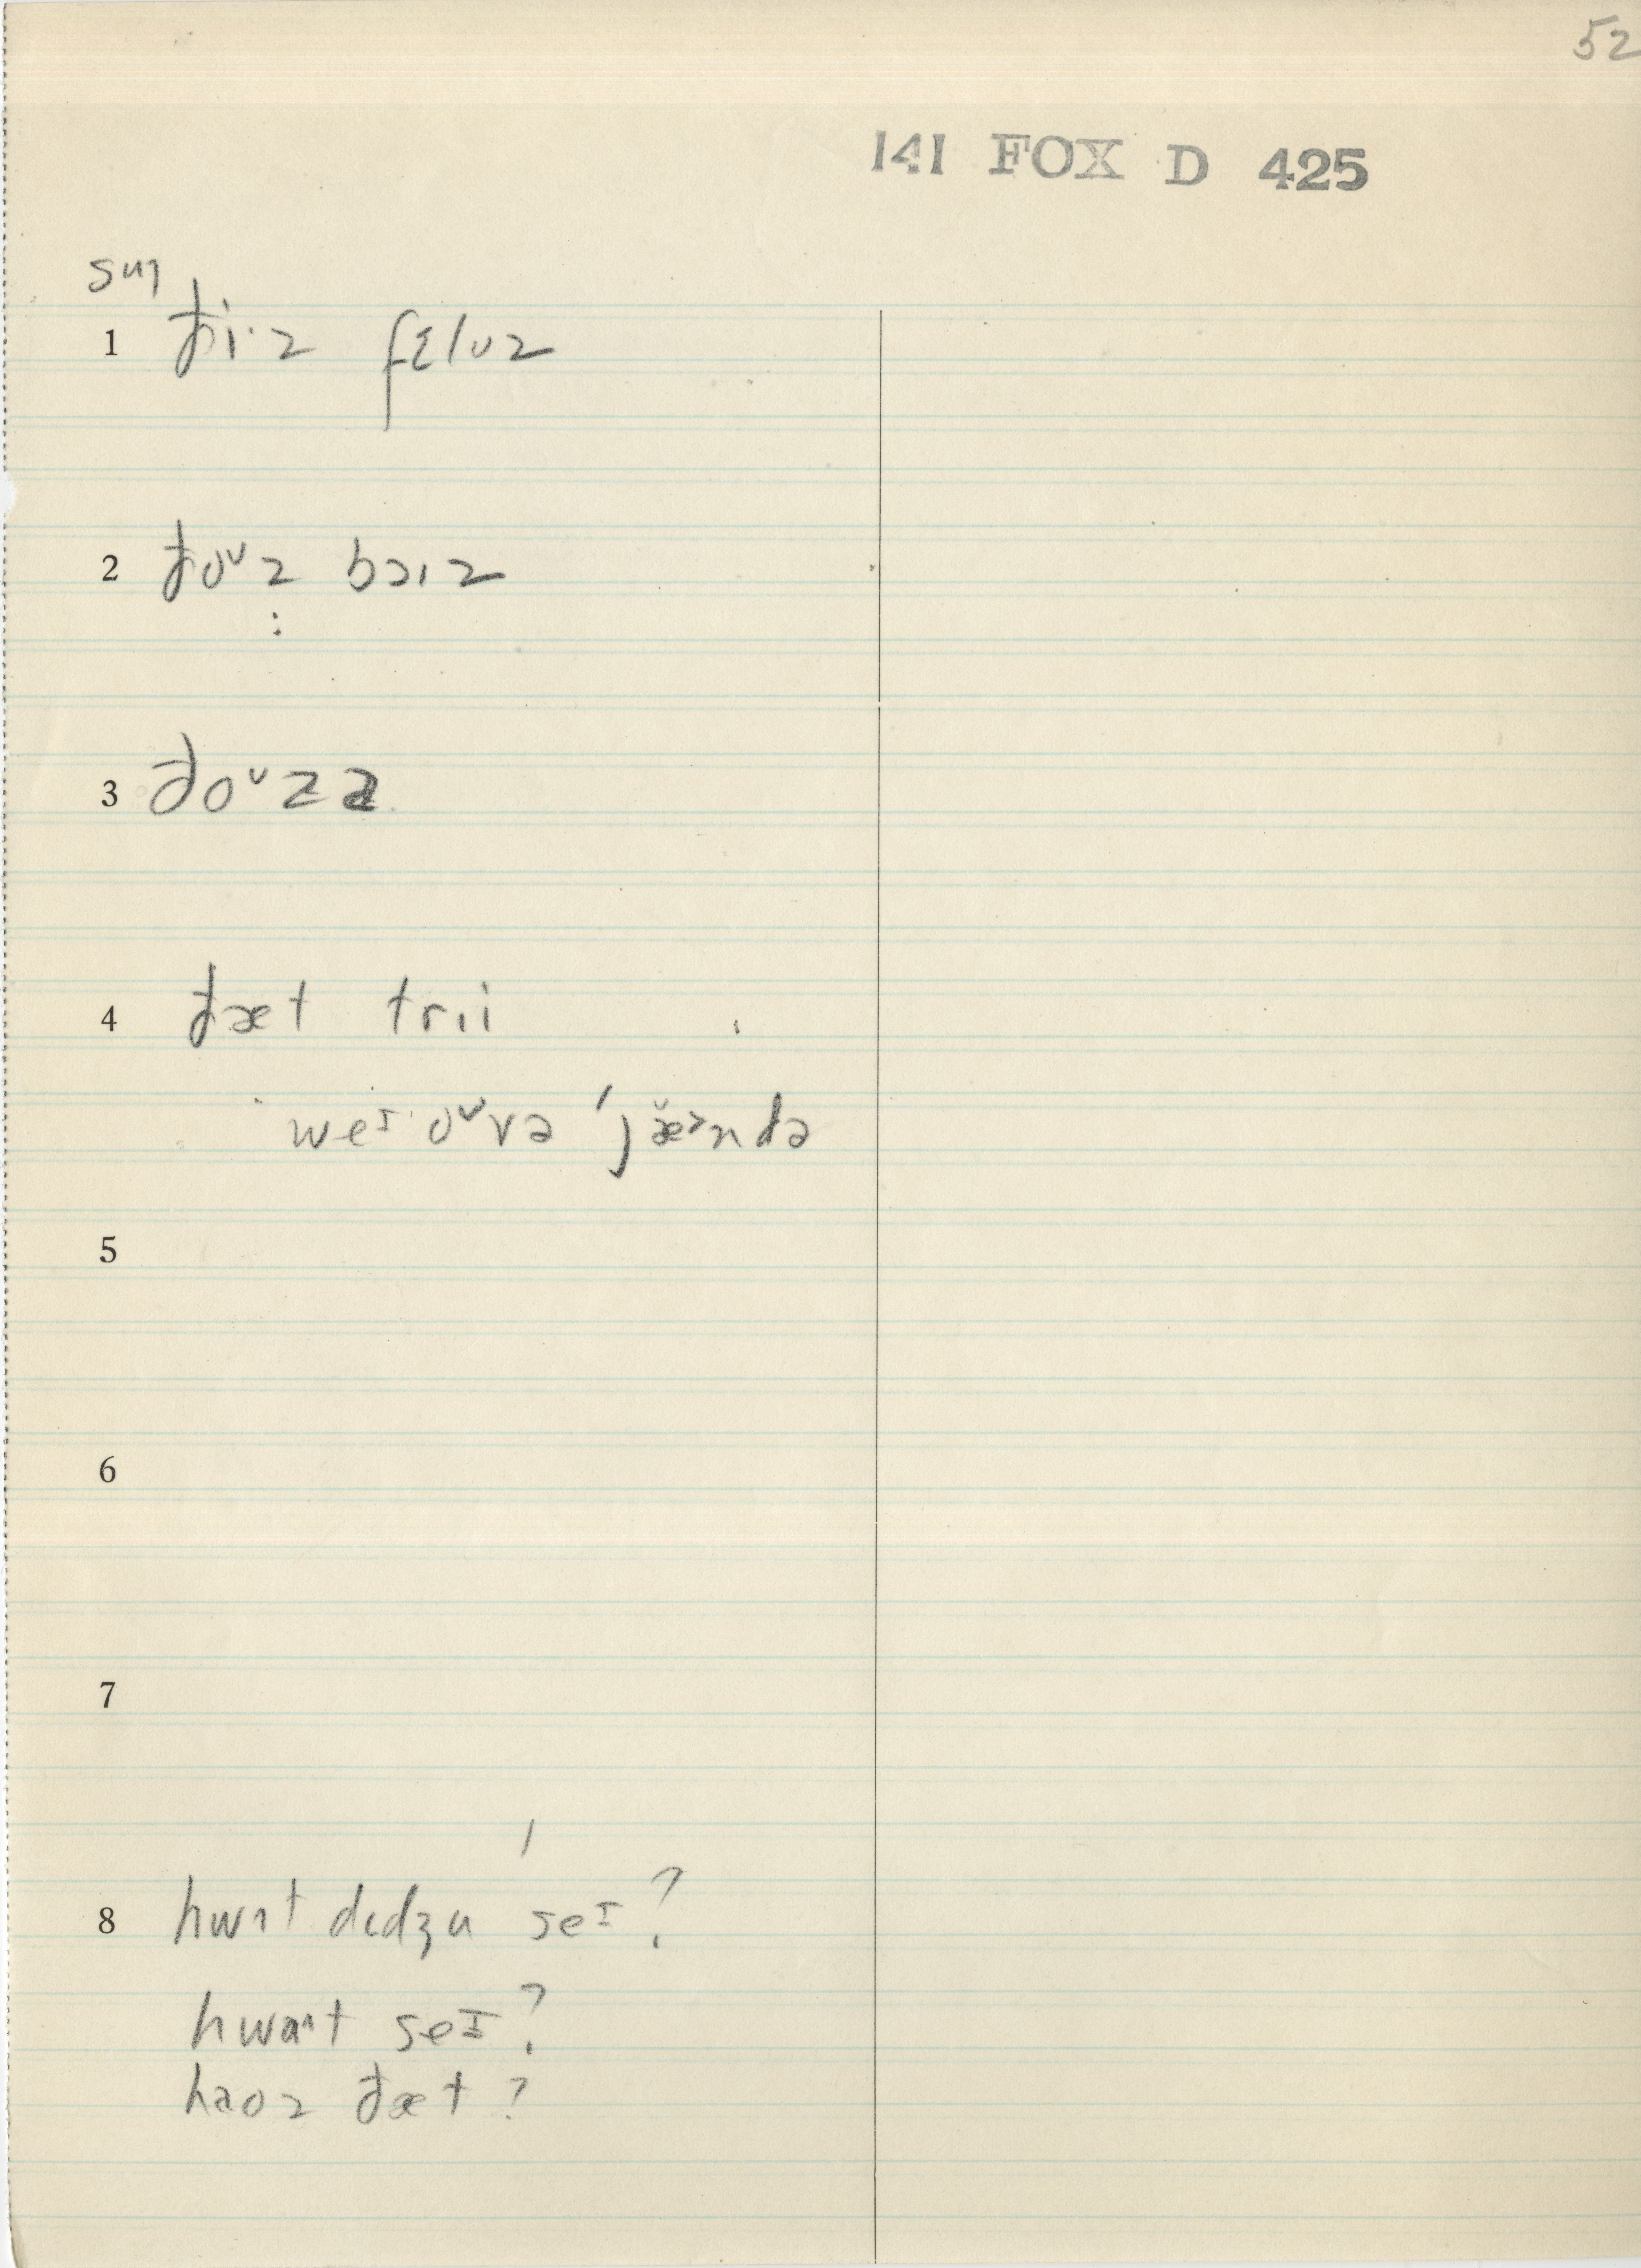 52
141 FOX D 425
sug
1 ði·z fɛluz
2 ðoᵛz bɔız
:
3 ðoᵛzz
4 ðæt trıi
weɪ oᵛvə 'jæ̆˃ndə
5
6
7
8 hwɑt dıdʒu 'seɪ?
hwɑʌt seɪ?
haoz ðæt?